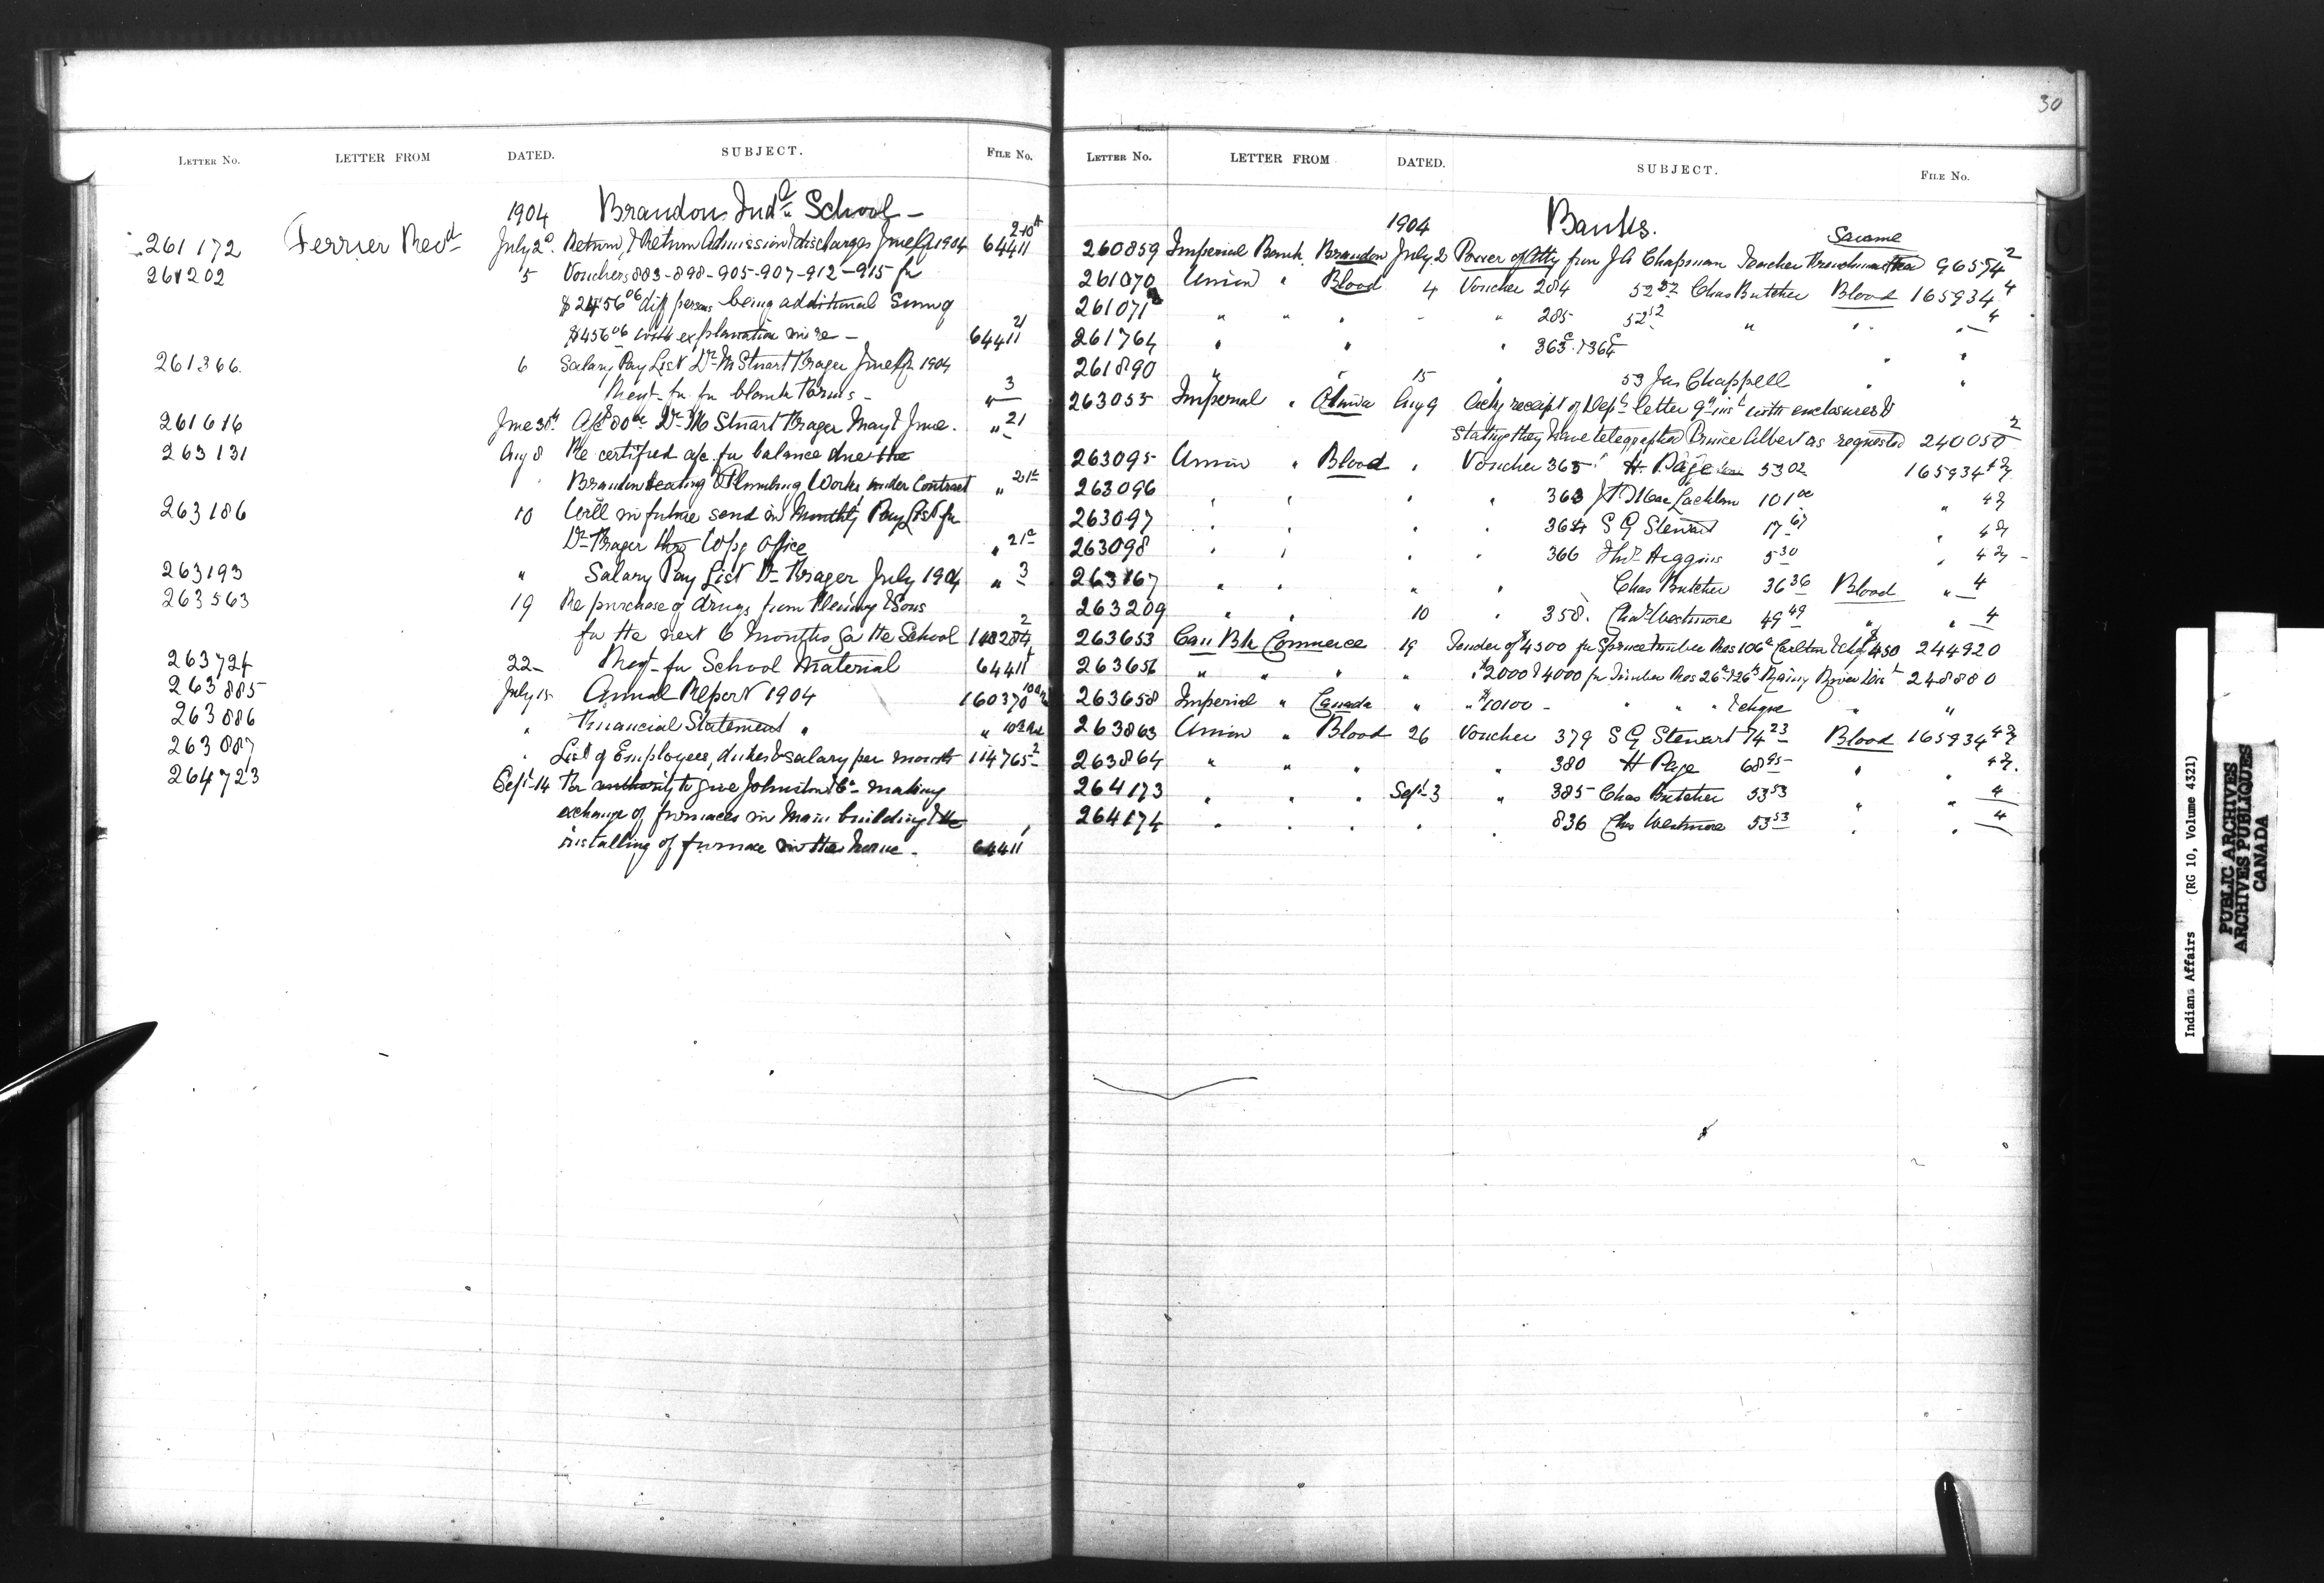 30
LETTER NO. LETTER FROM DATED. SUBJECT. FILE No.
1904 Brandon Indl School -
2-10A
261172 Ferrier Revd July 2d Return & Return Admission & discharges June Qr 1904 64411
261202 5 Vouchers 883-898-905-907-912-915 for
$2456 06 diff persons being additional Sum of
21
$456 06 with explanation in re - 64411
261366. 6 Salary Pay List Dr M Stuart Fraser June Qr 1904
Reqt- for blank Forms - " 3
261616 June 30th A/c $80 00 Dr M Stuart Fraser May & June. " 21
263131 Aug 8 Re certified a/c for balance due the
Brandon Heating & Plumbing Works under Contract " 21
263186 10 Will in future send in Monthly Pay List for
Dr Fraser thro Wpg Office " 21
263193 " Salary Pay List Dr Fraser July 1904 " 3
263563 19 Re purchase of drugs from Fleming & Sons
2
for the next 6 months for the School
263724 22- Reqt- for School Material 64411
263885 July 15 Annual Report 1904 160370
263886 " Financial Statement "
263887 " List of Employees, duties & salary per month 114765 2
264723 Sept 14 For authority to give Johnston & Co making
exchange of furnaces in Main building & the
installing of furnace in the 64411
LETTER No. LETTER FROM DATED. SUBJECT. FILE No.
1904 Banks.
260859 Imperial Bank. Brandon July 2 Power of Atty from J A Chapman Teacher 96554 2
261070 Union " Blood 4 Voucher 284 52 52 Chas Butcher Blood 165934 4
261071 " " " " 285 52 52 " " " 4
261764 " " " 363 & 364 " "
261890 " " 15 " 53 Jas Chappell " "
263055 Imperial " Ottawa Aug 9 Ackg receipt of Dept letter 9th inst with enclosures &
stating they have telegraphed Prince Albert as requested 240050 2
263095 Union " Blood " Voucher 365 H. Page 53 02 165934
263096 " " " " 363 J T MacLachlan 101 00 "
263097 " " " " 364 S G Stewart 17 67 "
263098 " " " " 366 Thos Higgins 5 30 "
263167 " " " " Chas Butcher 36 36 Blood " 4
263209 " " 10 " 358. Chas Westmore 49 49 " " 4
263653 Can Bk Commerce 19 Tender of $4500 for Spruce timber Res 106a Carlton & chq $450 244920
263656 " " " " $2000 & 4000 for Timber Res 26a & 26b Rainy River Dist 248880
263658 Imperial " Canada " " $10100 - " " " & chque " "
263863 Union " Blood 26 Voucher 379 S G Stewart 74 23 Blood 165934
263864 " " " " 380 H Page 68 95 " "
264173 " " " Sept 3 " 385 Chas Butcher 53 53 " " 4
264174 " " " " " 836 Chs Westmore 53 53 " " 4
Indians Affairs (RG 10, Volume 4321)
PUBLIC ARCHIVES
ARCHIVES PUBLIQUES
CANADA